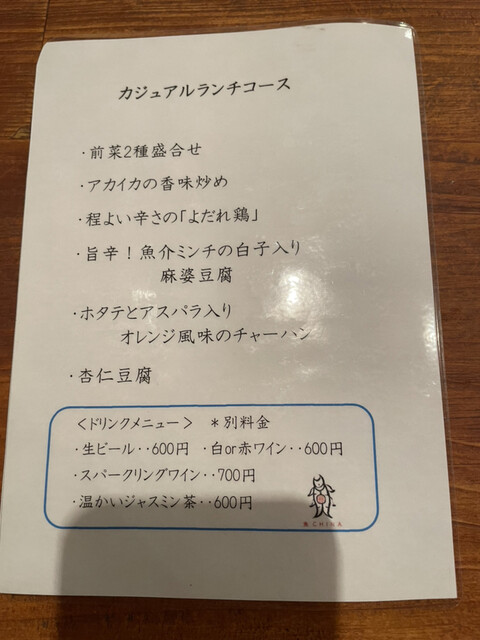 カジュアルランチコース
・前菜2種盛合せ
・アカイカの香味炒め
・程よい辛さの「よだれ鶏」
・旨辛！魚介ミンチの白子入り
麻婆豆腐
・ホタテとアスパラ入り
オレンジ風味のチャーハン
・杏仁豆腐
＜ドリンクメニュー＞ ＊別料金
・生ビール‥600円 ・白or赤ワイン‥600円
・スパークリングワイン‥700円
・温かいジャスミン茶‥600円
CHINA